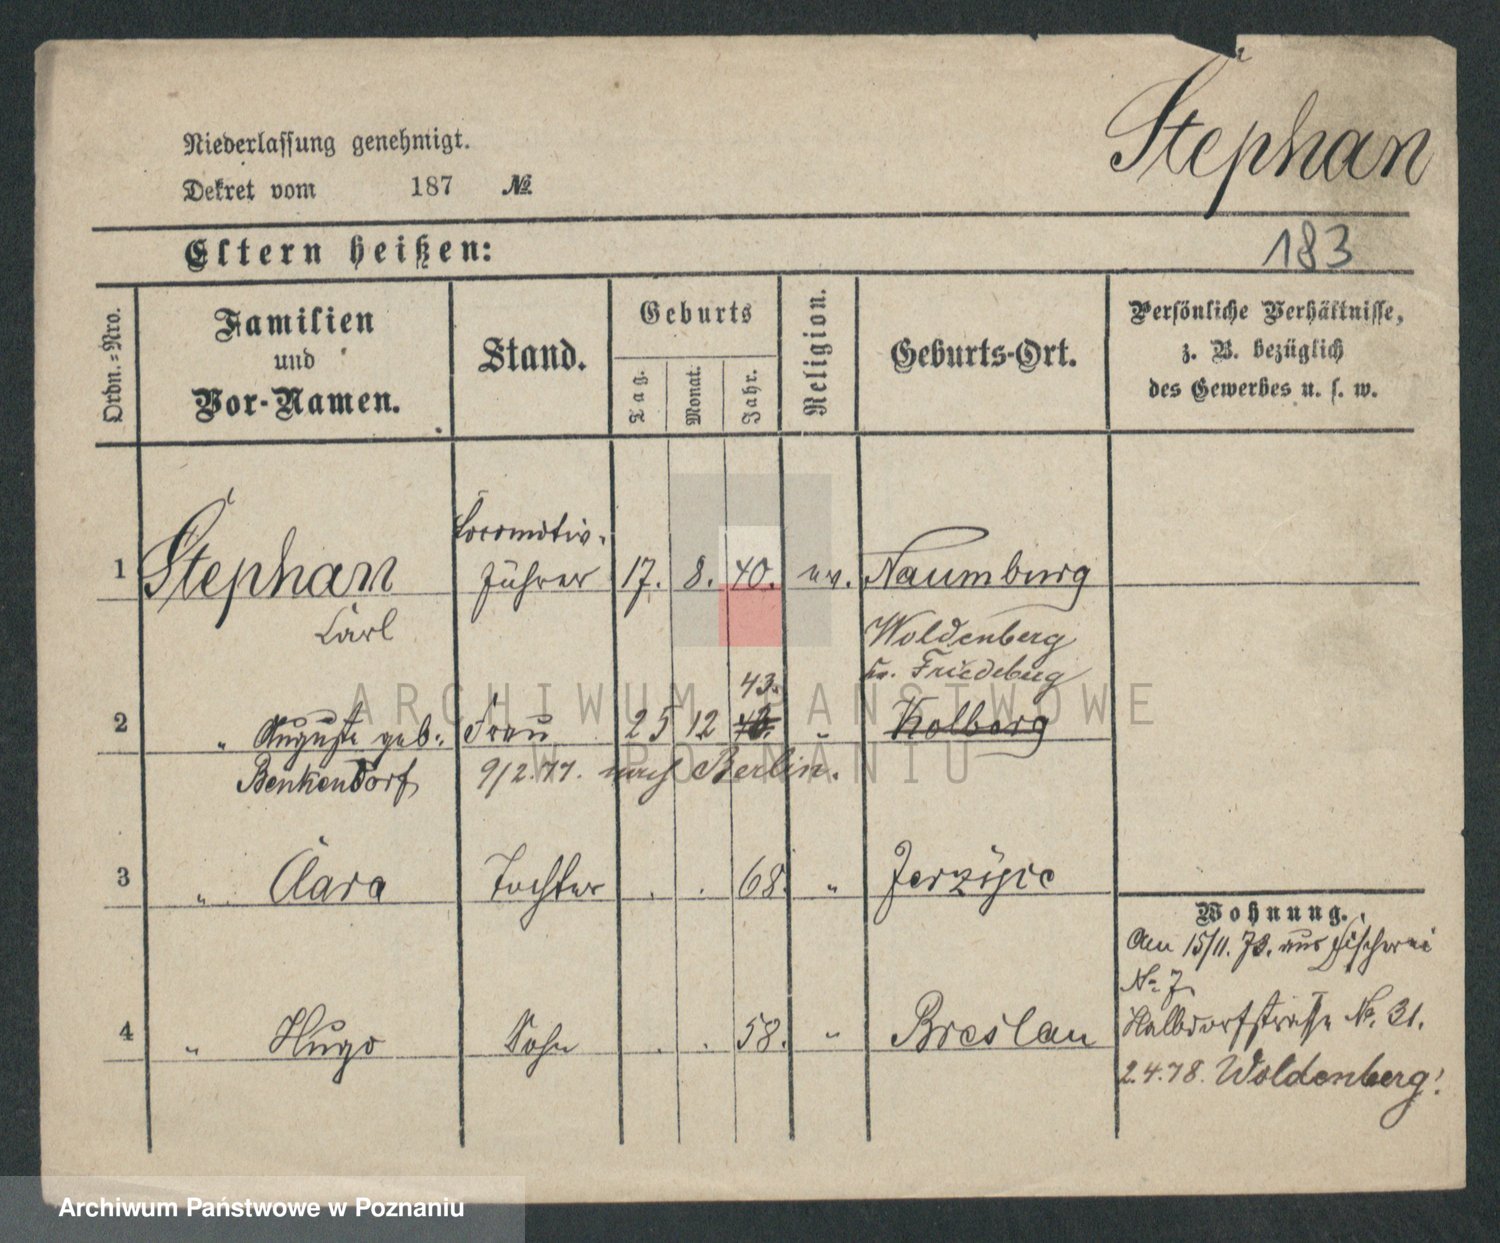 Stephan
Niederlassung genehmigt.
Dekret vom 187 №
183
Eltern heißen:
Ordn.-Nro.
Familien
und
Vor-Namen.
Stand.
Geburts
Tag.
Monat.
Jahr.
Religion.
Geburts-Ort.
Persönliche Verhältnisse,
z. B. bezüglich
des Gewerbes u. s. w.
Locomotiv-
1 Stephan Führer 17. 8. 40. ev. Naumburg
Carl
Woldenberg
Kr. Friedeberg
43.
2 " Auguste geb. Frau 25 12 " Kolberg
Benkendorf 9/2.77. nach Berlin.
3 " Clara Tochter . . 68. " Jerzyce
4 " Hugo Sohn . . 58. " Breslau
Wohnung.
Am 15/11. 73. aus Fischerei
No 7
Halbdorfstrasse No. 31.
2.4.78. Woldenberg!
ARCHIWUM PAŃSTWOWE
W POZNANIU
Archiwum Państwowe w Poznaniu